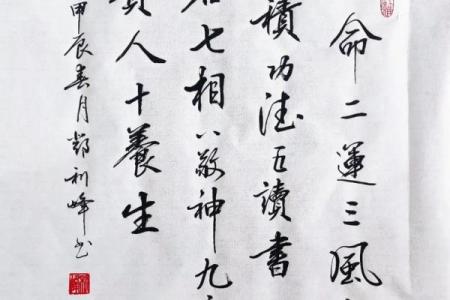 命二運三風
積功德五讀書
名七相八敬神九
貴人十養生
甲辰春月鄧利峰书